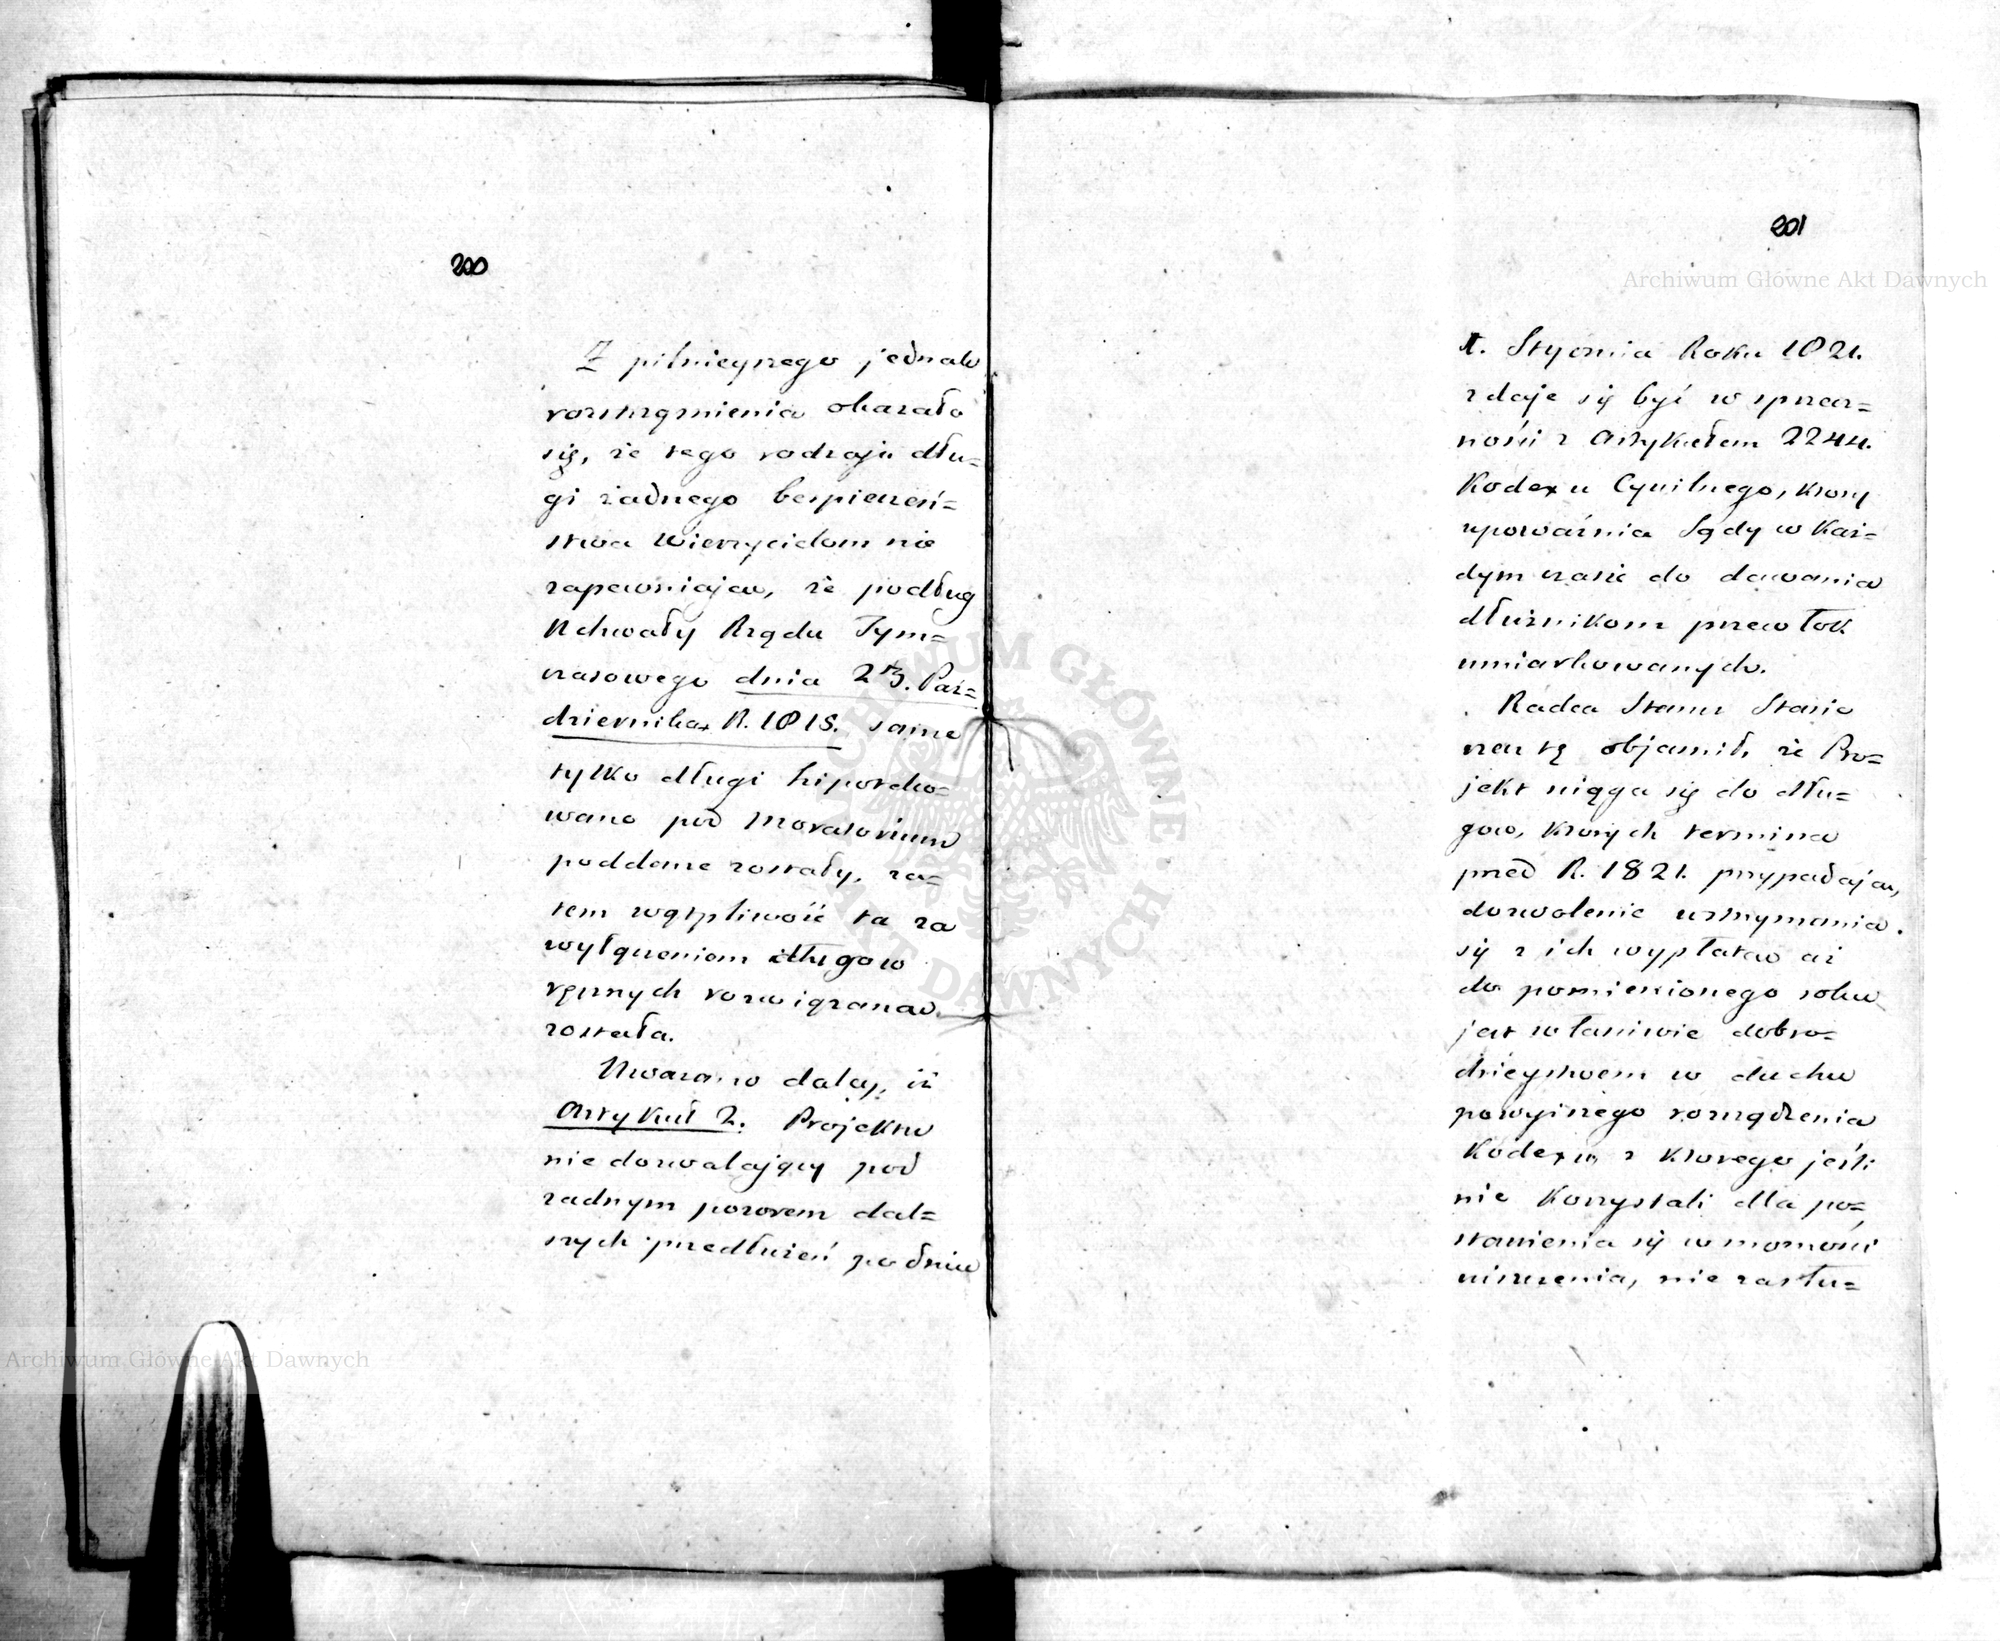 200
Z pilnieyszego jednak
rozstrząśnienia okazało
się, że tego rodzaju dłu=
gi żadnego bespieczeń=
stwa Wierzycielom nie
zapewniają, że podług
Uchwały Rządu Tym=
czasowego dnia 23. Paź=
dziernika R. 1813. same
tylko długi hipoteko=
wane pod Moratorium
poddane zostały, za=
tem wątpliwość ta za
wyłączeniem długow
ręcznych rozwiązana
została.
Uważano daley, iż
Artykuł 2. Projektu
niedozwalający pod
żadnym pozorem dal=
szych przedłużeń po dniu
201
1. Stycznia Roku 1821.
zdaje się być w sprzecz=
ności z Artykułem 2244.
Kodexu Cywilnego, ktory
upoważnia Sądy w każ=
dym czasie do dawania
dłużnikom przewłok
umiarkowanych.
Radca Stanu Staszic
na tę objawił, że Pro=
jekt ściąga się do dłu=
gow, ktorych termina
przed R. 1821. przypadają,
dozwolenie wstrzymania
się z ich wypłatą aż
do pomienionego roku
jest właściwie dobro=
dzieystwem w duchu
powyższego rozrządzenia
Kodexu z ktorego jeśli
nie korzystali dla po=
stawienia się w możności
uiszczenia, nie zasłu=
Archiwum Główne Akt Dawnych
Archiwum Główne Akt Dawnych
ARCHIWUM GŁÓWNE AKT DAWNYCH